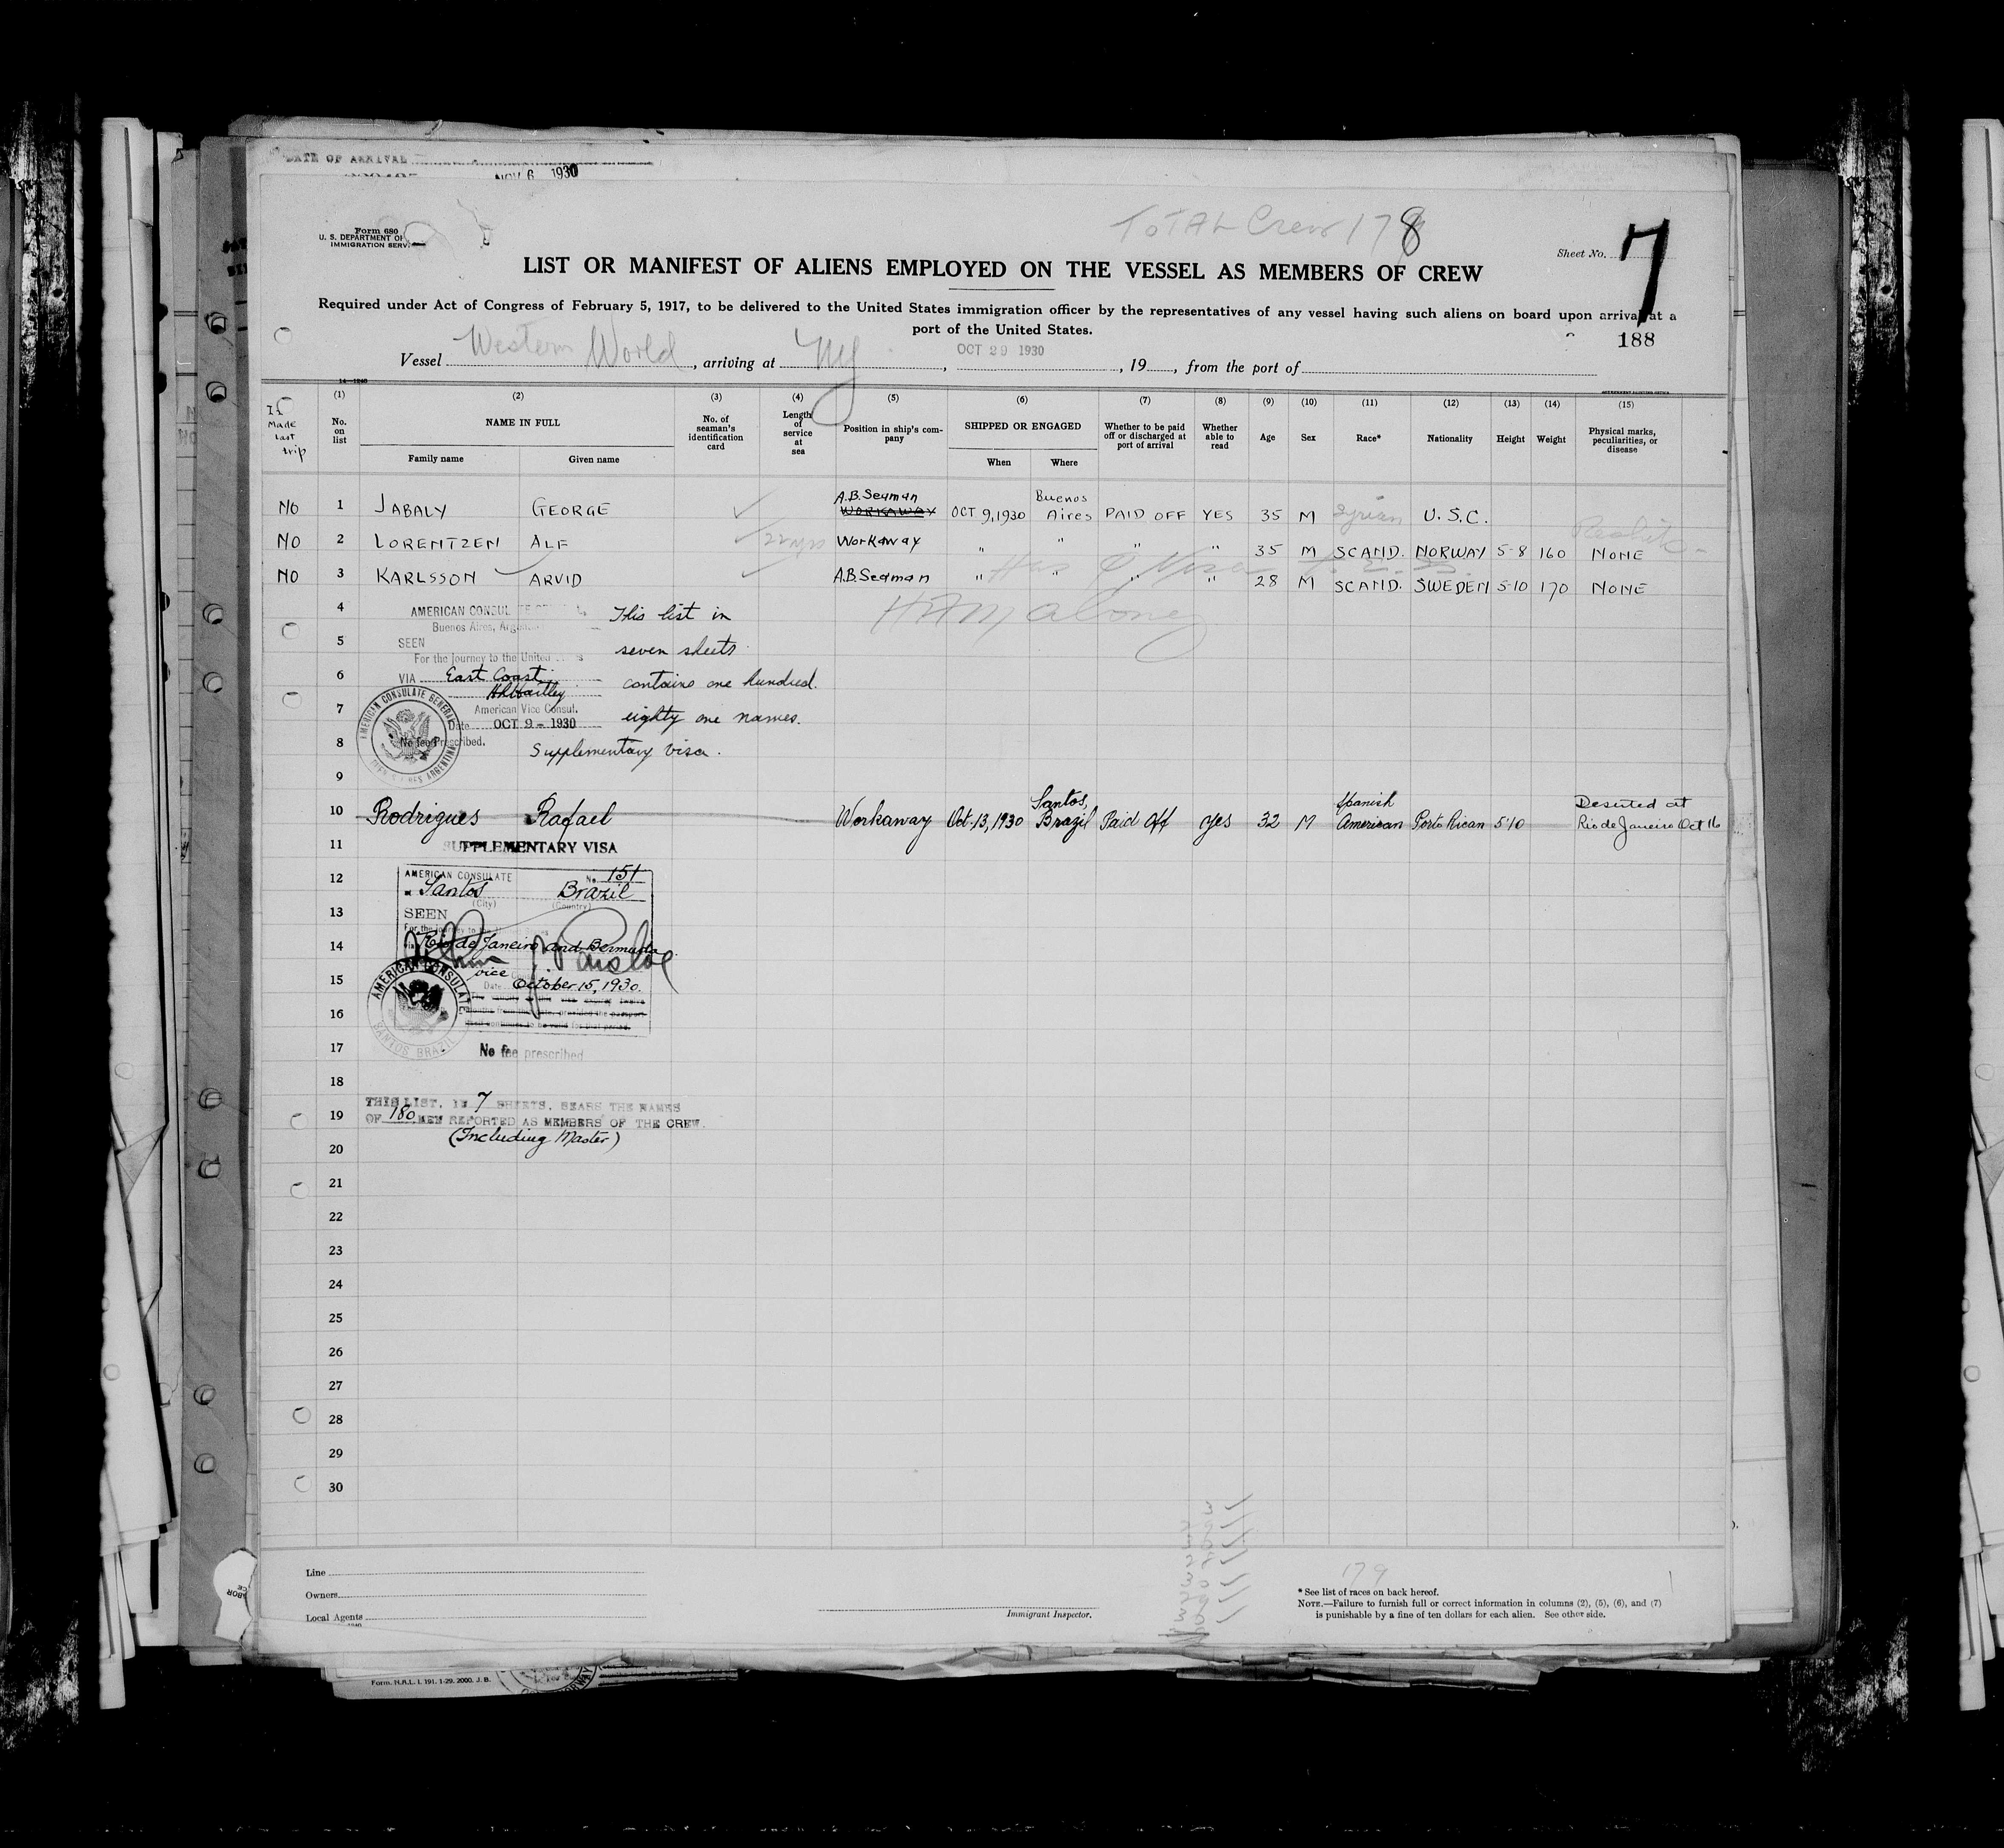 DATE OF ARRIVAL
NOV 6 1930
Form 680
U. S. DEPARTMENT OF
IMMIGRATION SERV
TOTAL Crew 178
Sheet No. 7
LIST OR MANIFEST OF ALIENS EMPLOYED ON THE VESSEL AS MEMBERS OF CREW
Required under Act of Congress of February 5, 1917, to be delivered to the United States immigration officer by the representatives of any vessel having such aliens on board upon arrival at a
port of the United States.
188
Vessel Western World, arriving at NY, OCT 29 1930, 19, from the port of
14—1240
GOVERNMENT PRINTING OFFICE
If Made Last trip
(1) No. on list
(2) NAME IN FULL
Family name Given name
(3) No. of seaman's identification card
(4) Length of service at sea
(5) Position in ship's company
(6) SHIPPED OR ENGAGED
When Where
(7) Whether to be paid off or discharged at port of arrival
(8) Whether able to read
(9) Age
(10) Sex
(11) Race*
(12) Nationality
(13) Height
(14) Weight
(15) Physical marks, peculiarities, or disease
NO 1 JABALY GEORGE A.B. Seaman WORKAWAY OCT 9, 1930 Buenos Aires PAID OFF YES 35 M Syrian U.S.C.
NO 2 LORENTZEN ALF Workaway " " " " 35 M SCAND. NORWAY 5-8 160 NONE
NO 3 KARLSSON ARVID A.B. Seaman " " " " 28 M SCAND. SWEDEN 5-10 170 NONE
4 AMERICAN CONSUL This list in
Buenos Aires, Arg
5 SEEN seven sheets
For the journey to the United
6 VIA East Coast contains one hundred.
American Vice Consul.
7 Date OCT 9 - 1930 eighty one names.
AMERICAN CONSULATE GENERAL
8 No fee Prescribed. Supplementary visa.
9
10 Rodrigues Rafael Workaway Oct. 13, 1930 Santos, Brazil Paid Off yes 32 M Spanish American Porto Rican 5'10 Deserted at Rio de Janeiro Oct 16
11 SUPPLEMENTARY VISA
12 AMERICAN CONSULATE No. 151
Santos Brazil
(City) (Country)
13 SEEN
For the journey to the
14 Rio de Janeiro and Bermuda
vice
15 Date October 15, 1930.
AMERICAN CONSULATE
SANTOS BRAZIL
16
17 No fee prescribed
18
THIS LIST, IN 7 SHEETS, BEARS THE NAMES
19 OF 180 MEN REPORTED AS MEMBERS OF THE CREW.
(Including Master)
20
21
22
23
24
25
26
27
28
29
30
Line
Owners
Local Agents
Immigrant Inspector.
179
* See list of races on back hereof.
NOTE.—Failure to furnish full or correct information in columns (2), (5), (6), and (7)
is punishable by a fine of ten dollars for each alien. See other side.
Form. H.A.L. I. 191. 1-29. 2000. J. B.